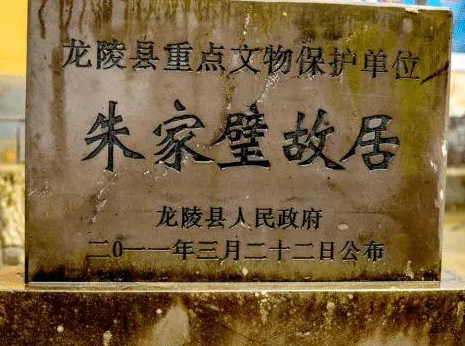 龙陵县重点文物保护单位
朱家璧故居
龙陵县人民政府
二0一一年三月二十二日公布